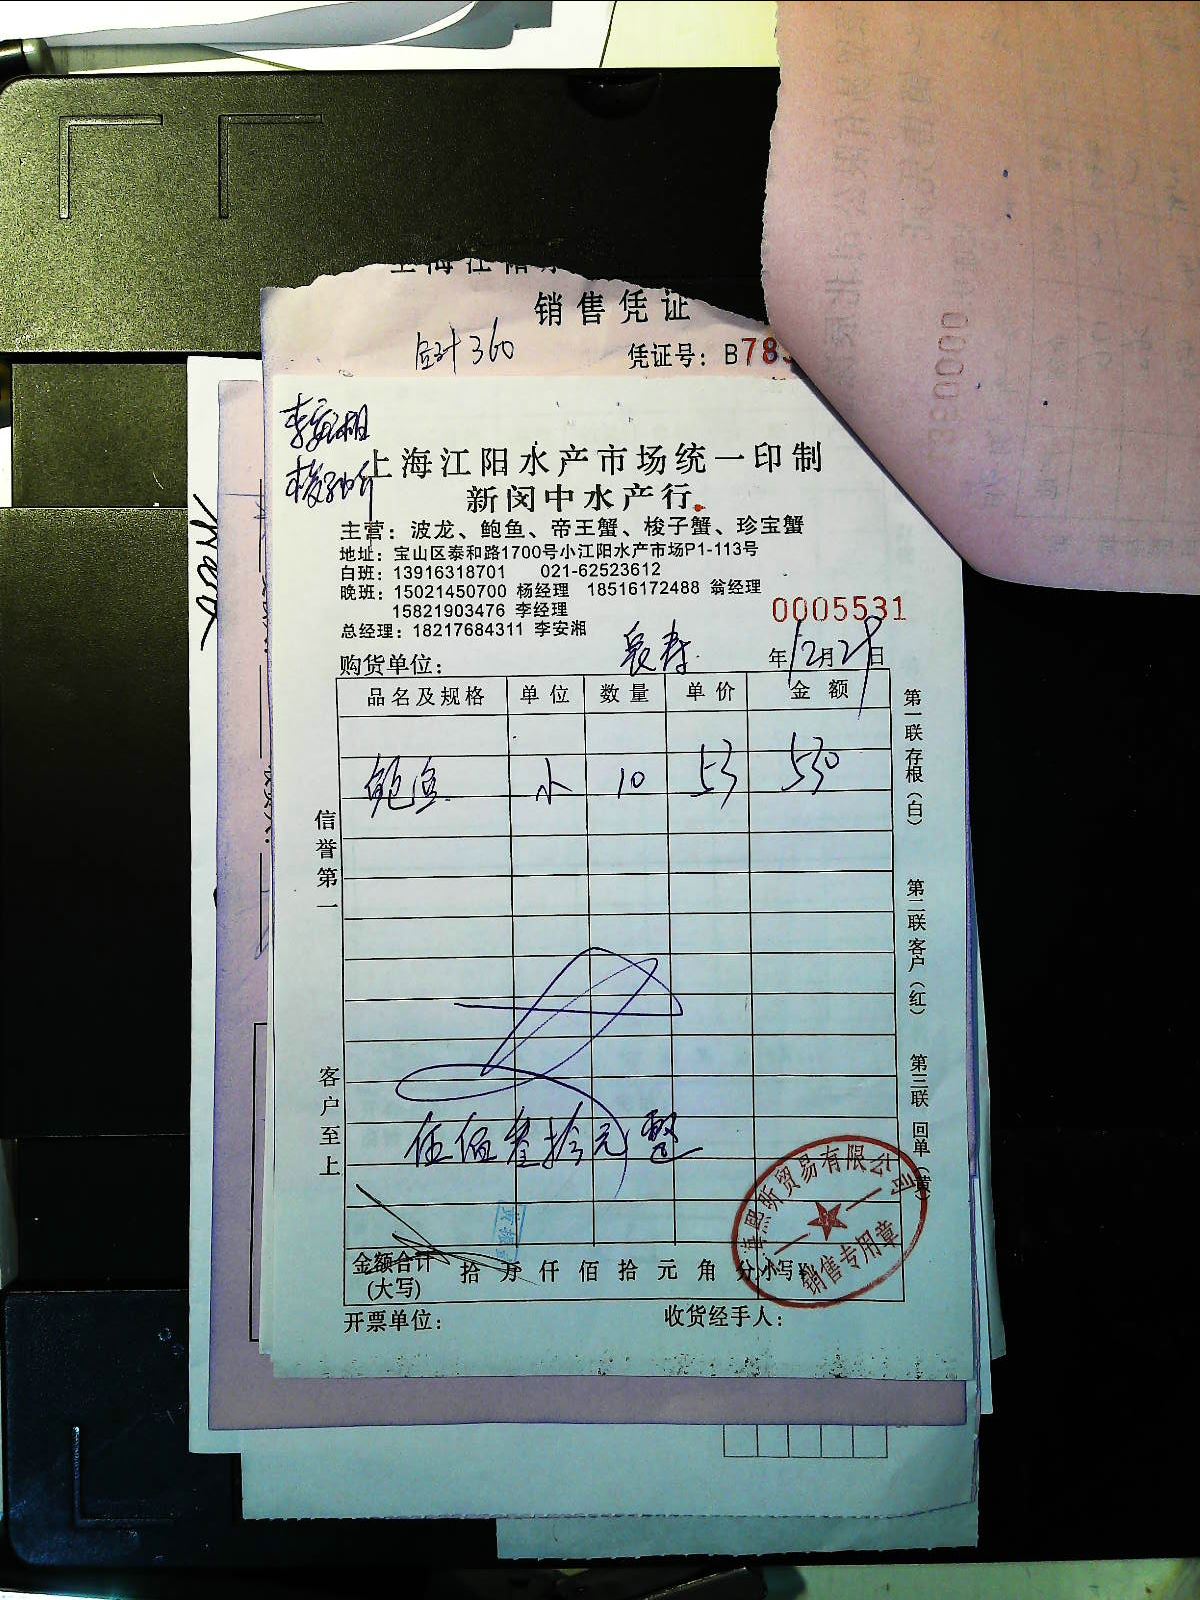 销售凭证
合计360
凭证号：B78
李安湘
上海江阳水产市场统一印制
新闵中水产行
主营：波龙、鲍鱼、帝王蟹、梭子蟹、珍宝蟹
地址：宝山区泰和路1700号小江阳水产市场P1-113号
白班：13916318701 021-62523612
晚班：15021450700 杨经理 18516172488 翁经理
15821903476 李经理
总经理：18217684311 李安湘
0005531
购货单位： 年12月29日
品名及规格 单位 数量 单价 金额
鲍鱼 小 10 53 530
伍佰叁拾元整
金额合计(大写) 拾 万 仟 佰 拾 元 角 分 小写¥
开票单位： 收货经手人：
信誉第一
客户至上
第一联 存根（白）
第二联 客户（红）
第三联 回单（黄）
熙昕贸易有限公司
销售专用章